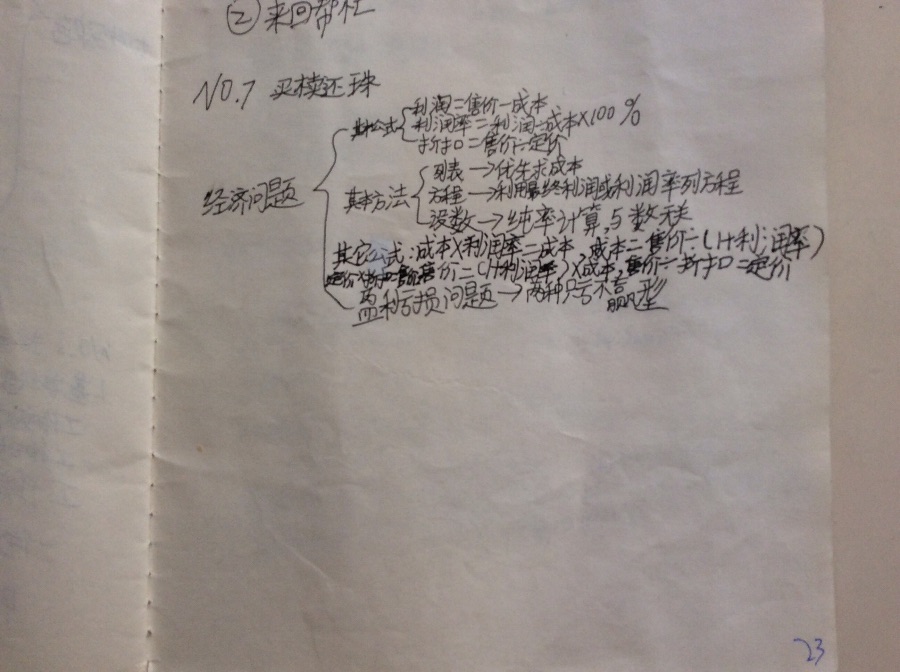 ②来回帮忙
NO.7 买椟还珠
经济问题
基本公式
利润=售价-成本
利润率=利润÷成本×100%
折扣=售价÷定价
基本方法
列表→优先求成本
方程→利用最终利润或利润率列方程
设数→纯率计算,与数无关
其它公式:成本×利润率=成本,成本=售价÷(1+利润率)
定价×折扣=售价 售价=(1+利润率)×成本,售价÷折扣=定价
盈利亏损问题→两种只亏不赢型
23